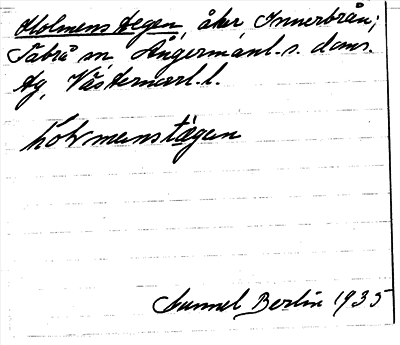 Holmens tegen, åker Innerbrån;
Säbrå sn, Ångermanl. s. doms.
tg, Västernorrl. l.
hòlmenstægen
Gunnel Berlin 1935